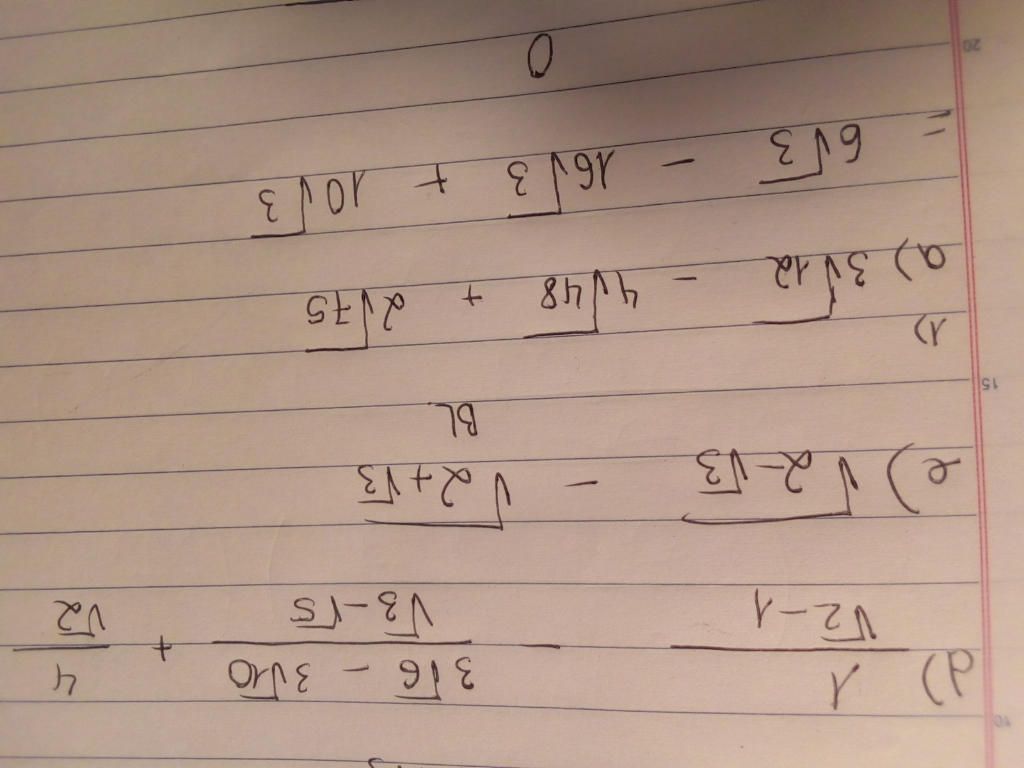 d) 1/(√2-1) - (3√6 - 3√10)/(√3-√5) + 4/√2
e) √(2-√3) - √(2+√3)
BL
1)
a) 3√12 - 4√48 + 2√75
= 6√3 - 16√3 + 10√3
0
10
15
20